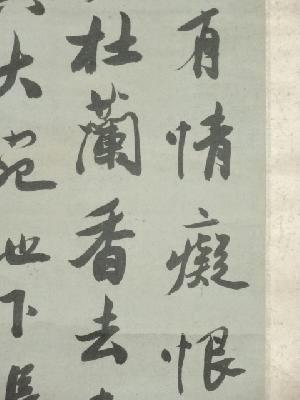 有情癡恨
杜蘭香去
大宛世下